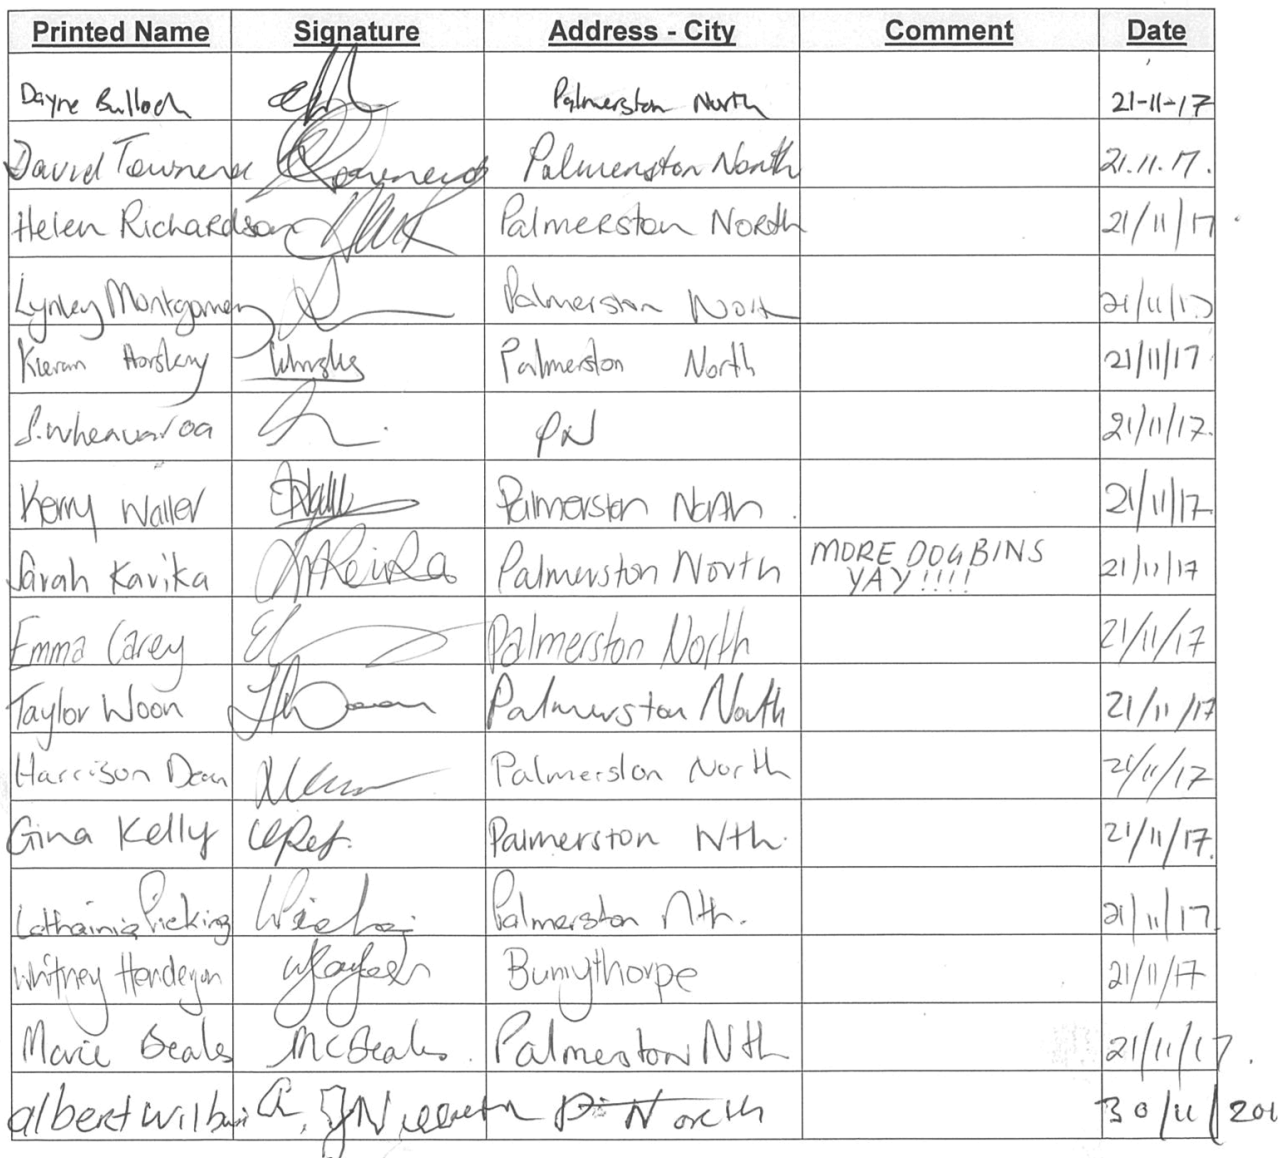 Printed Name Signature Address - City Comment Date
Dayne Bulloch Palmerston North 21-11-17
David Townend Townend Palmerston North 21.11.17.
Helen Richardson Palmerston North 21/11/17
Lynley Montgomery Palmerston North 21/11/17
Kieran Horsley Palmerston North 21/11/17
S. Whenuaroa PN 21/11/17.
Kerry Waller Palmerston North 21/11/17
Sarah Karika Palmerston North MORE DOG BINS 21/11/17
YAY!!!!
Emma Carey Palmerston North 21/11/17
Taylor Woon Palmerston North 21/11/17
Harrison Dean Palmerston North 21/11/17
Gina Kelly Palmerston Nth. 21/11/17.
Picking Palmerston Nth. 21/11/17
Whitney Henderson Bunnythorpe 21/11/17
Marie Beales McBeales. Palmerston Nth 21/11/17.
albert P. North 30/11/201